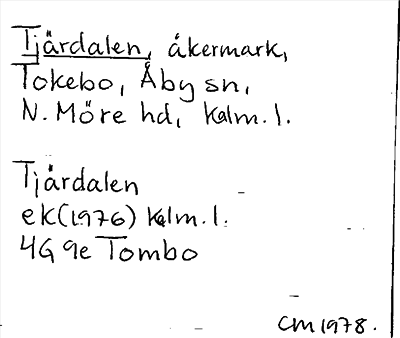 Tjärdalen, åkermark,
Tokebo, Åby sn,
N. Möre hd, Kalm. l.
Tjärdalen
ek (1976) Kalm. l.
4G 9e Tombo
CM 1978.